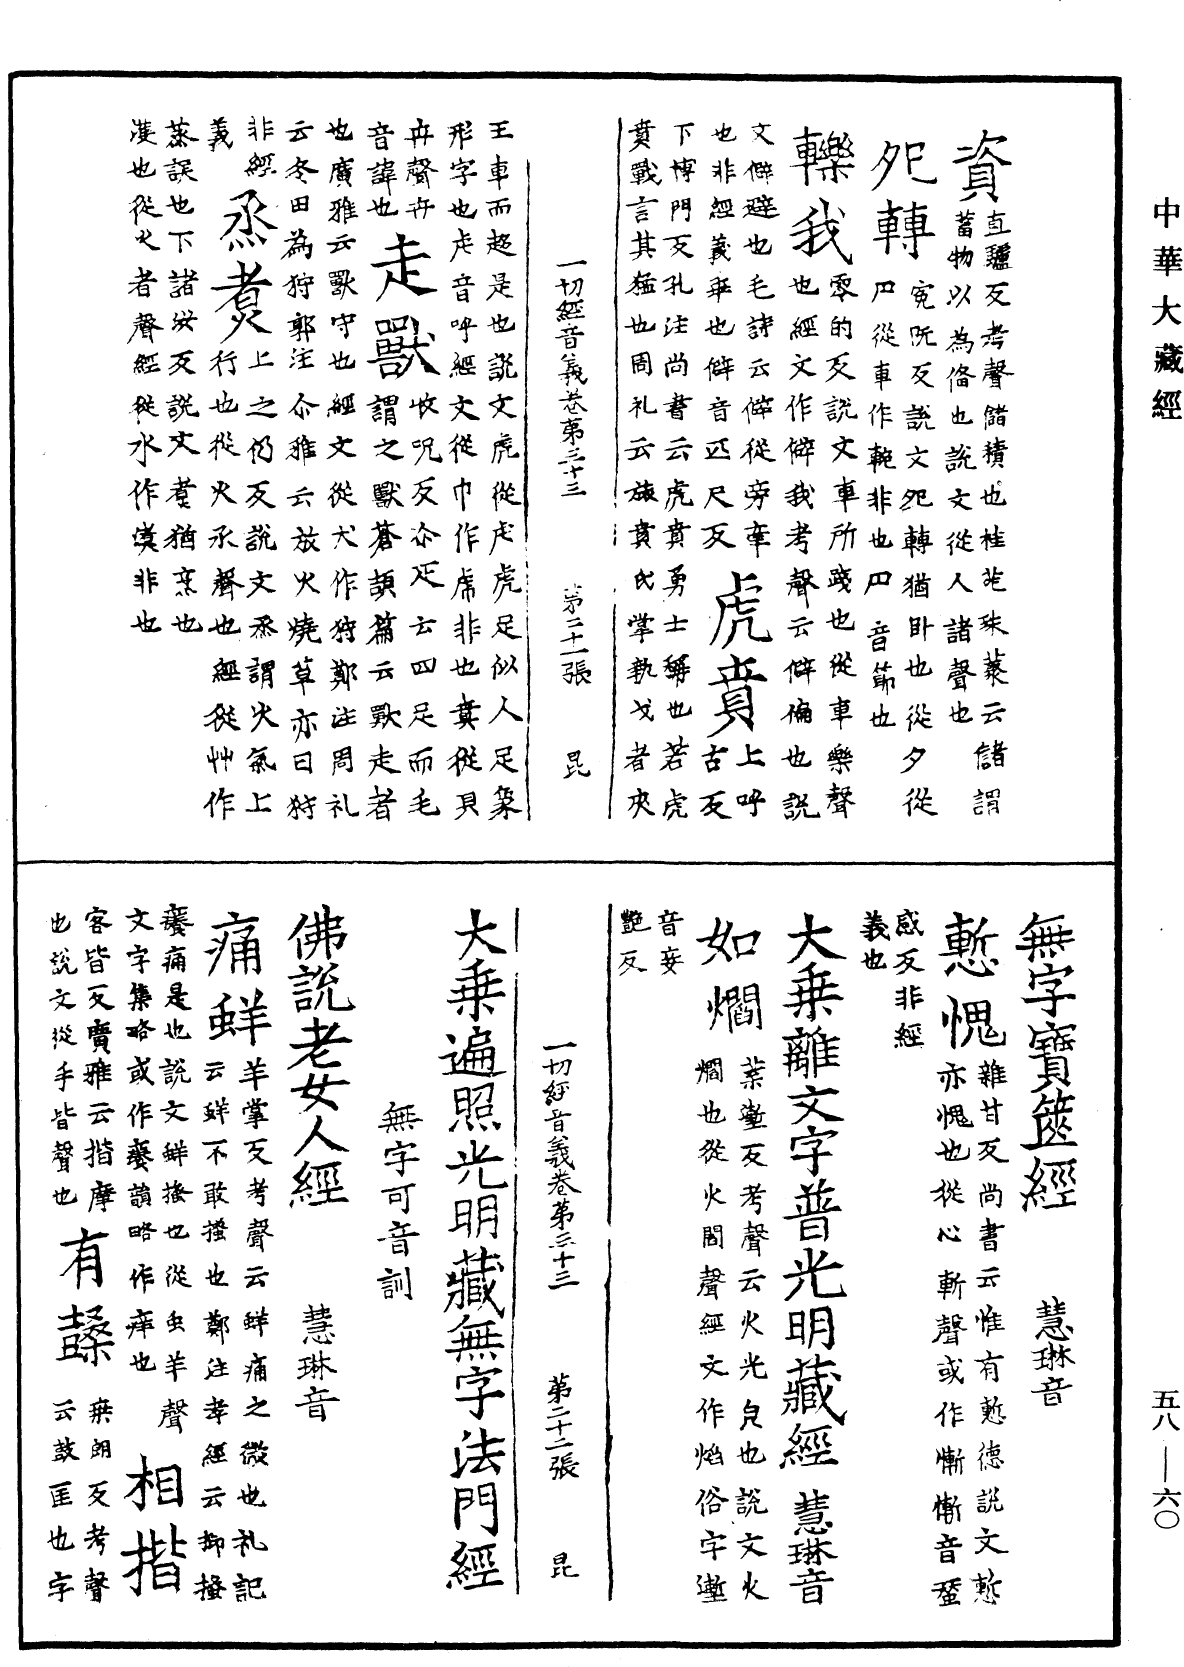 中華大藏經
五八—六〇
資 直驢反考聲儲積也桂苑珠叢云儲謂
蓄物以為俻也說文從人諸聲也
夗轉 宛阮反說文夗轉猶卧也從夕從
卩從車作輓非也卩音節也
轢我 零的反說文車所踐也從車樂聲
也經文作僻我考聲云僻偏也說
文僻避也毛詩云僻從旁牽
也非經義乖也僻音匹尺反 虎賁 上呼古反
下博門反孔注尚書云虎賁勇士稱也若虎
賁戰言其猛也周礼云旅賁氏掌執戈者夾
一切經音義卷第三十三 第二十一張 昆
王車而趍是也說文虎從虍虎足似人足象
形字也虍音呼經文從巾作虎非也賁從貝
卉聲卉音諱也
走獸 收呪反尒疋云四足而毛
謂之獸蒼頡篇云獸走者
也廣雅云獸守也經文從犬作狩鄭注周礼
云冬田為狩郭注尒雅云放火燒草亦曰狩
非經義
烝煑 上之仍反說文烝謂火氣上
行也從火丞聲也經從艸作
蒸誤也下諸汝反說文煑猶烹也
𤋎也從火者聲經從水作渚非也
無字寶篋經 慧琳音
慙愧 雜甘反尚書云惟有慙德說文慙
亦愧也從心斬聲或作慚慚音蠶
感反非經
義也
大乘離文字普光明藏經 慧琳音
如爓 葉壍反考聲云火光皃也說文火
爓也從火閻聲經文作焰俗字壍
音妾
艷反
一切經音義卷第三十三 第二十二張 昆
大乘遍照光明藏無字法門經
無字可音訓
佛說老女人經 慧琳音
痛蛘 羊掌反考聲云蛘痛之微也礼記
云蛘不敢搔也鄭注孝經云抑搔
癢痛是也說文蛘搔也從虫羊聲
文字集略或作癢韻略作痒也 相揩
客皆反廣雅云揩摩
也說文從手皆聲也 有𪔛 桒朗反考聲
云鼓匡也字